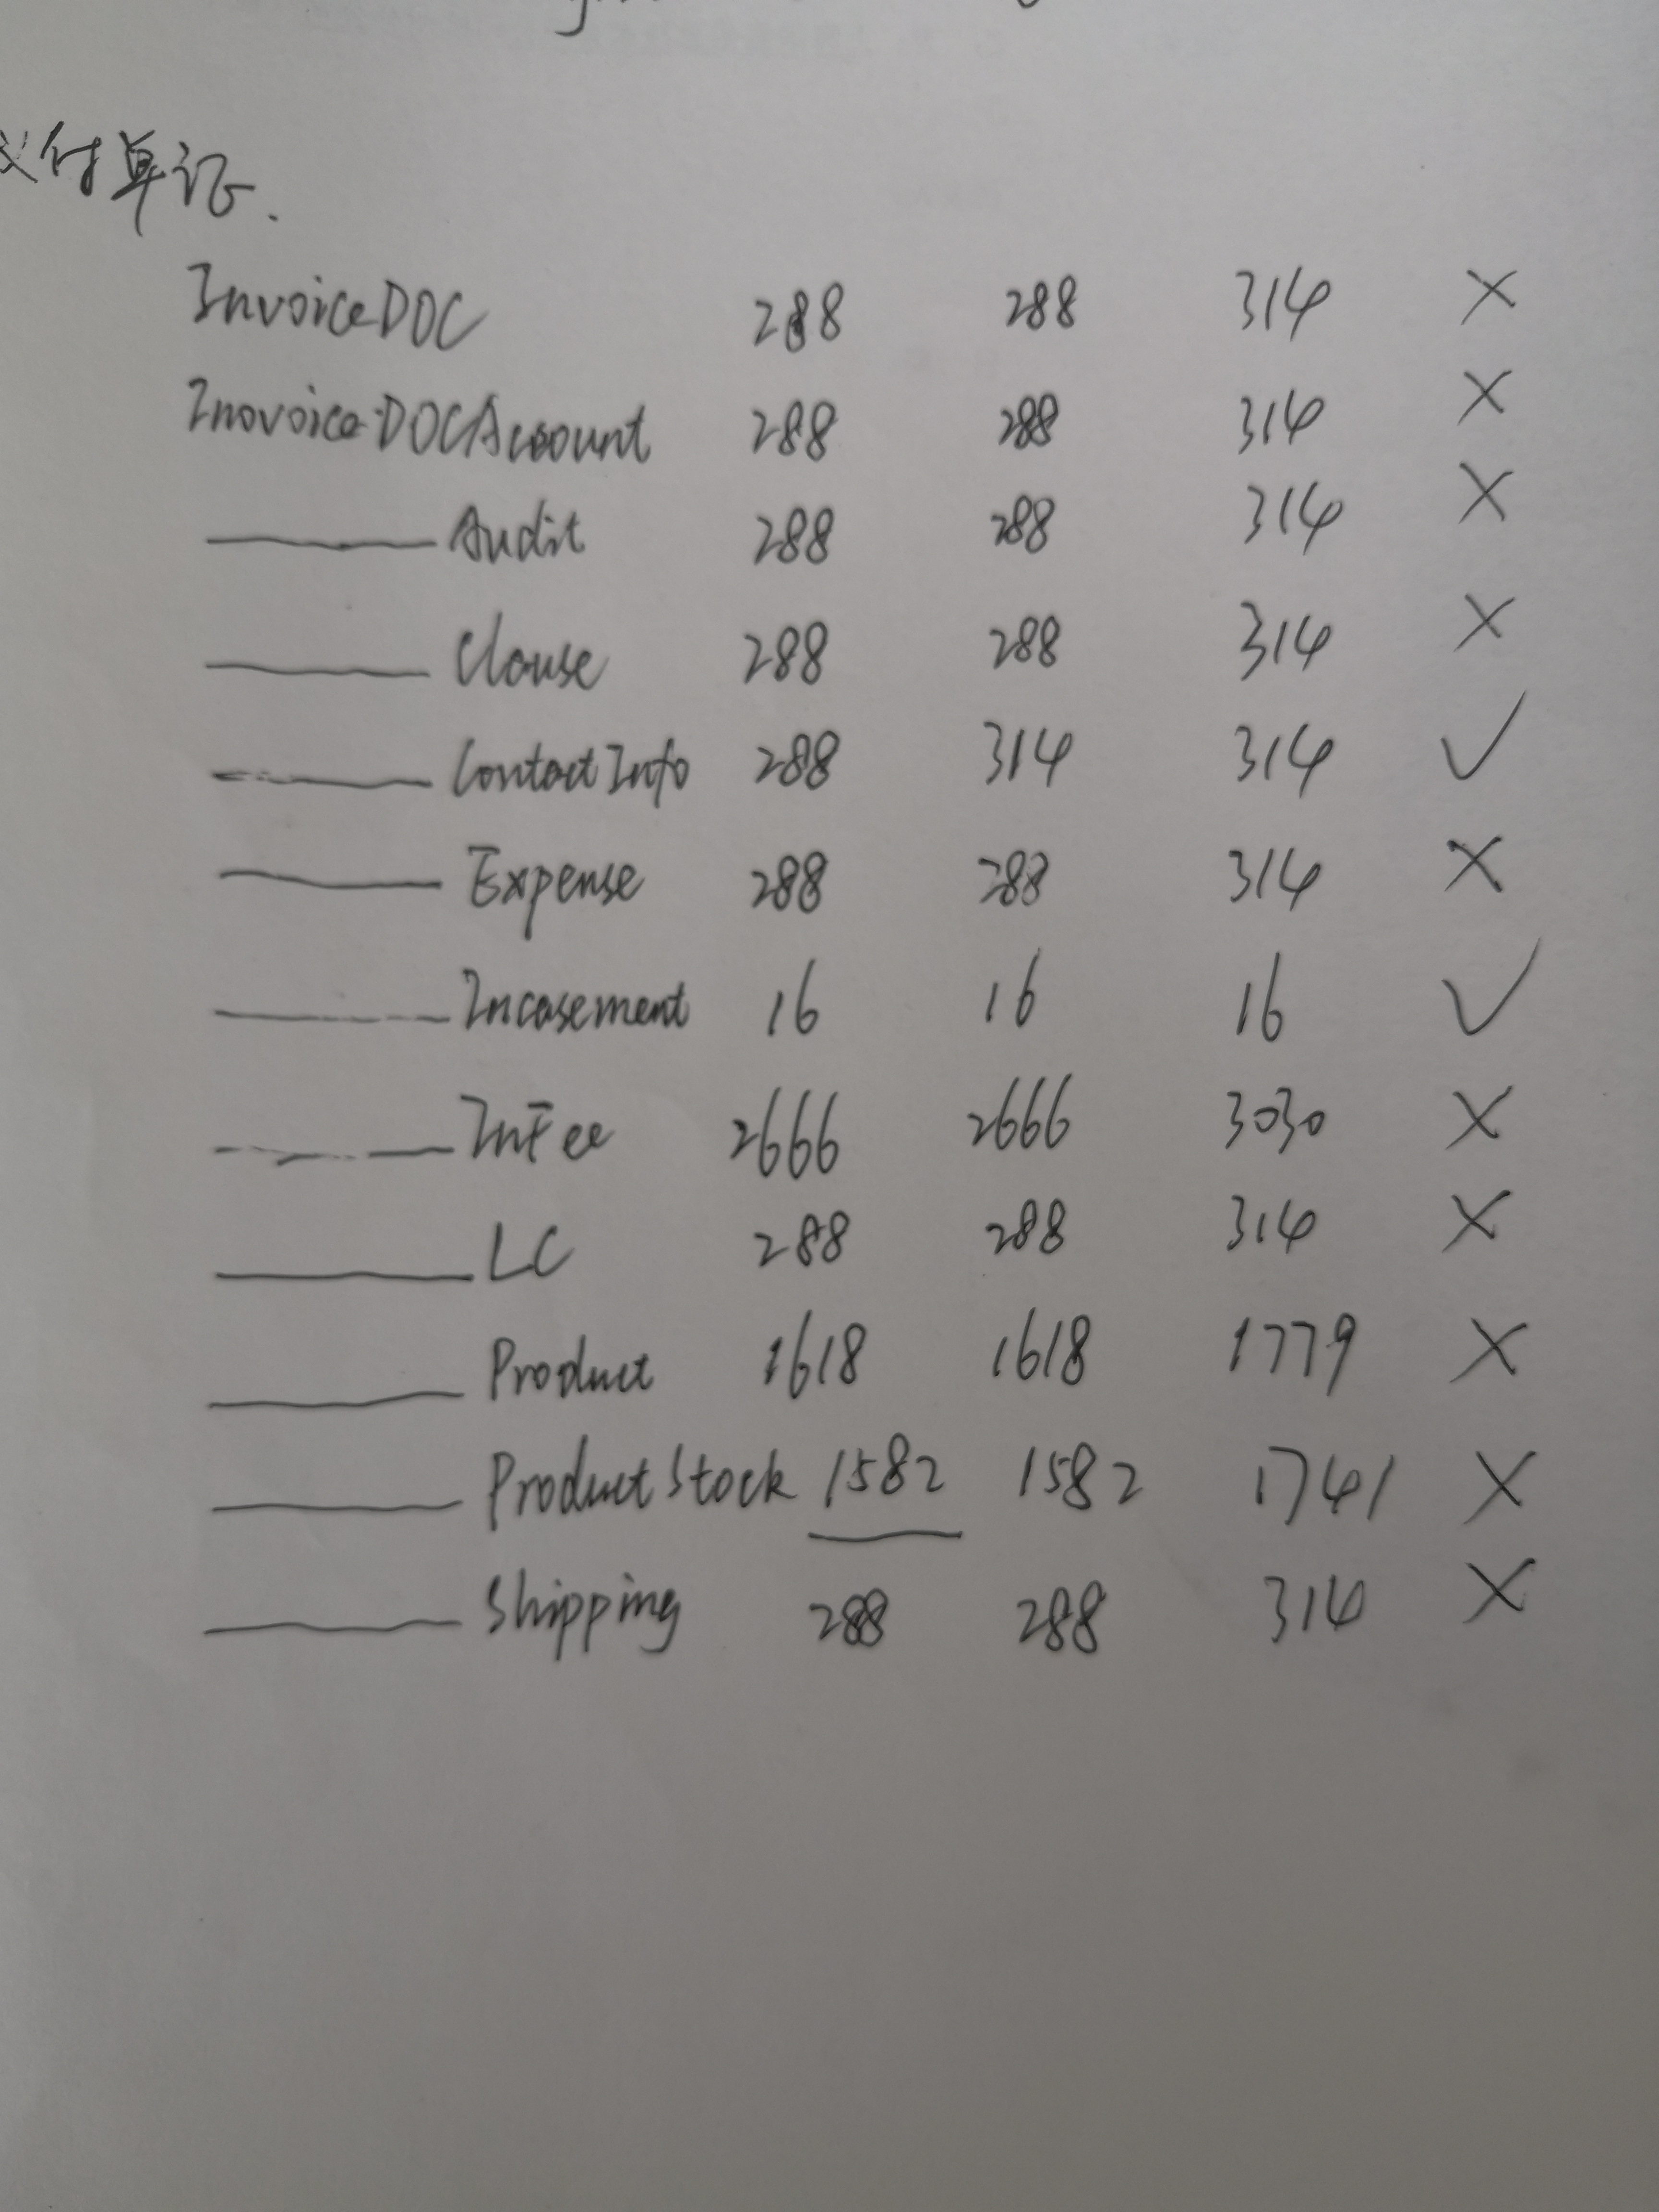 付单证.
InvoiceDOC 288 288 314 ×
InovoiceDOCAccount 288 288 314 ×
——— Audit 288 288 314 ×
——— Clause 288 288 314 ×
——— ContactInfo 288 314 314 ✓
——— Expense 288 288 314 ×
——— Incasement 16 16 16 ✓
——— InFee 2666 2666 3030 ×
——— LC 288 288 314 ×
——— Product 1618 1618 1779 ×
——— ProductStock 1582 1582 1741 ×
——— Shipping 288 288 314 ×